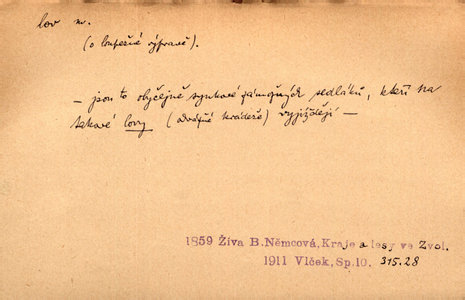 lov m.
(o loupežné výpravě).
— jsou to obyčejně synkové zámožných sedláků, kteří na
takové lovy ( krádeže) vyjíždějí —
1859 Živa B.Němcová, Kraje a lesy ve Zvol.
1911 Vlček, Sp.10. 315.28